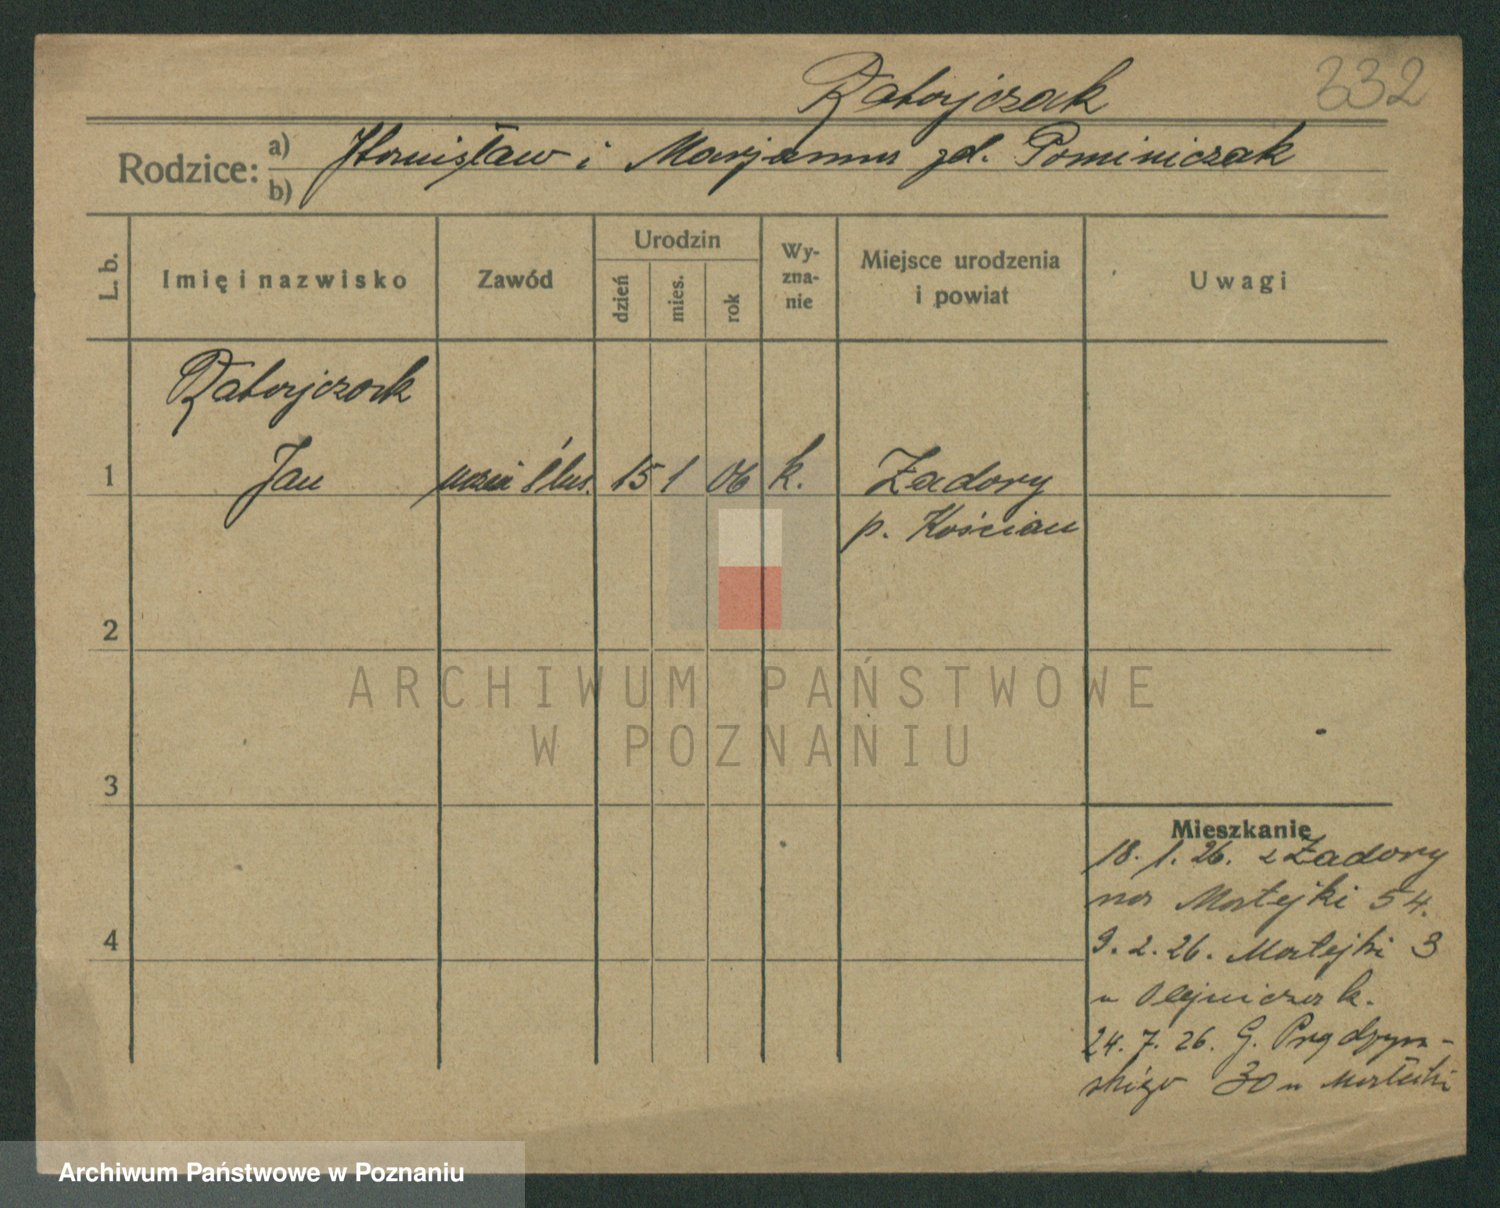 Ratajczak 332
Rodzice: a) Stanisław i Marjanna zd. Dominiczak
b)
L. b. Imię i nazwisko Zawód Urodzin dzień mies. rok Wy-zna-nie Miejsce urodzenia i powiat Uwagi
Ratajczak
1 Jan uczeń ślus. 15 1 06 k. Zadory
p. Kościan
2
ARCHIWUM PAŃSTWOWE
W POZNANIU
3
Mieszkanie
18. 1. 26. z Zadory
na Matejki 54.
4
9. 2. 26. Matejki 3
u Olejniczak.
24. 7. 26. G. Prądzyń-
skiego 30 u
Archiwum Państwowe w Poznaniu